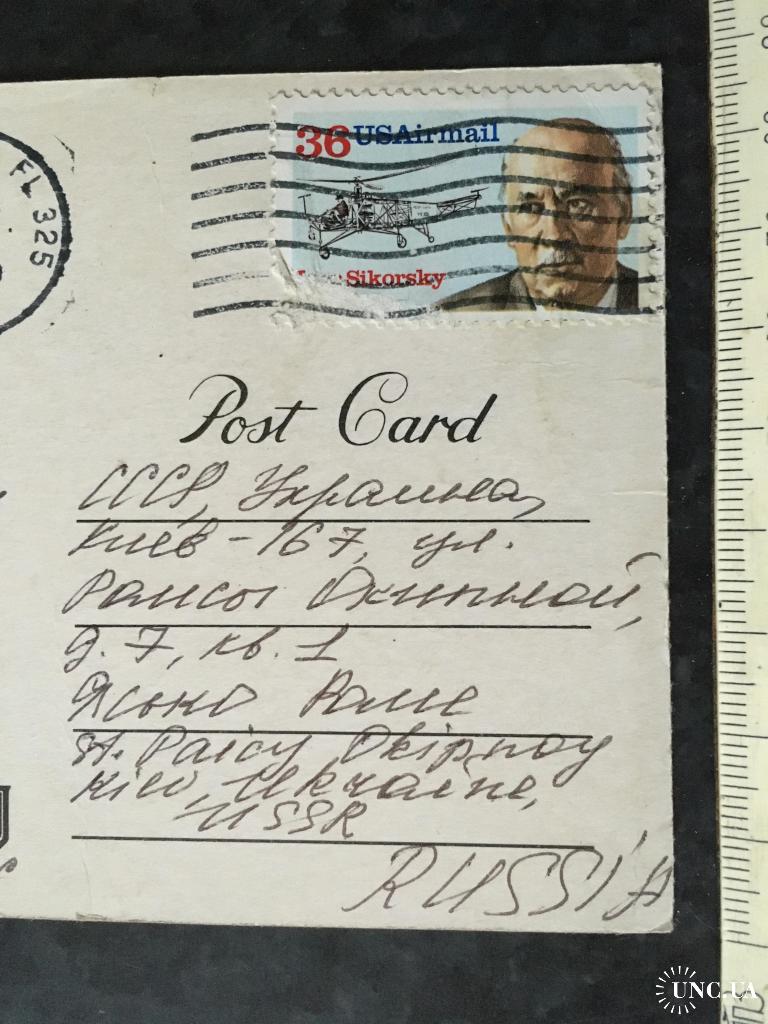 FL 325
36 USAirmail
Sikorsky
Post Card
СССР, Украина,
Киев - 167, ул.
Раисы Окипной,
д. 7, кв. 1
Ясько Рае
st. Paicy Okipnoy
Kiev, Ukraine,
USSR
RUSSIA
UNC.UA